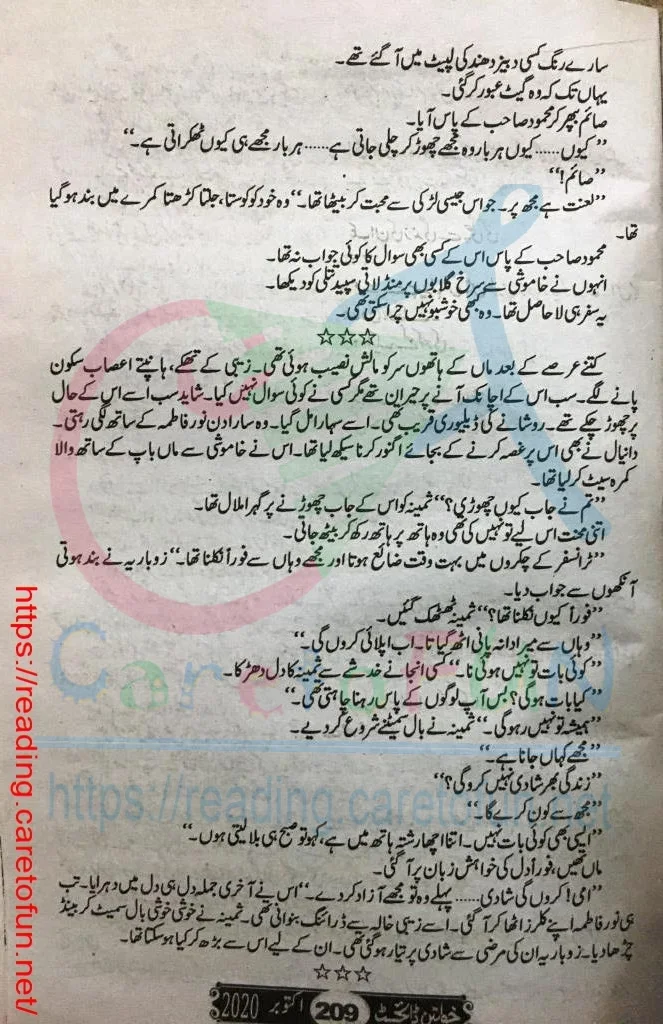 سارے رنگ کسی دبیز دھند کی لپیٹ میں آ گئے تھے۔
یہاں تک کہ وہ گیٹ عبور کر گئی۔
صائم بھر کر محمود صاحب کے پاس آیا۔
”کیوں...... کیوں ہر بار وہ مجھے چھوڑ کر چلی جاتی ہے...... ہر بار مجھے ہی کیوں ٹھکراتی ہے۔“
”صائم!“
”لعنت ہے مجھ پر۔ جو اس جیسی لڑکی سے محبت کر بیٹھا تھا۔“ وہ خود کو کوستا، جلتا کڑھتا کمرے میں بند ہو گیا
تھا۔
محمود صاحب کے پاس اس کے کسی بھی سوال کا کوئی جواب نہ تھا۔
انہوں نے خاموشی سے سرخ گلابوں پر منڈلاتی سپید تتلی کو دیکھا۔
یہ سفر ہی لا حاصل تھا۔ وہ کبھی خوشبو نہیں چرا سکتی تھی۔
☆☆☆
کتنے عرصے کے بعد ماں کے ہاتھوں سر کو مالش نصیب ہوئی تھی۔ زیبی کے تھکے، ہانپتے اعصاب سکون
پانے لگے۔ سب اس کے اچانک آنے پر حیران تھے مگر کسی نے کوئی سوال نہیں کیا۔ شاید سب اسے اس کے حال
پر چھوڑ چکے تھے۔ روشانے کی ڈیلیوری قریب تھی۔ اسے سہارا مل گیا۔ وہ سارا دن نور فاطمہ کے ساتھ لگی رہتی۔
دانیال نے بھی اس پر غصہ کرنے کے بجائے اگنور کرنا سیکھ لیا تھا۔ اس نے خاموشی سے ماں باپ کے ساتھ والا
کمرہ سیٹ کر لیا تھا۔
”تم نے جاب کیوں چھوڑی؟“ ثمینہ کو اس کے جاب چھوڑنے پر گہرا ملال تھا۔
اتنی محنت اس لیے تو نہیں کی تھی وہ ہاتھ پر ہاتھ رکھ کر بیٹھ جاتی۔
”ٹرانسفر کے چکروں میں بہت وقت ضائع ہوتا اور مجھے وہاں سے فوراً نکلنا تھا۔“ زوباریہ نے بند ہوتی
آنکھوں سے جواب دیا۔
”فوراً کیوں نکلنا تھا؟“ ثمینہ ٹھٹک گئیں۔
”وہاں سے میرا دانہ پانی اٹھ گیا نا۔ اب اپلائی کروں گی۔“
”کوئی بات تو نہیں ہوئی نا۔“ کسی انجانے خدشے سے ثمینہ کا دل دھڑکا۔
”کیا بات ہوگی؟ بس آپ لوگوں کے پاس رہنا چاہتی تھی۔“
”ہمیشہ تو نہیں رہو گی۔“ ثمینہ نے بال سمیٹنے شروع کر دیے۔
”مجھے کہاں جانا ہے۔“
”زندگی بھر شادی نہیں کرو گی؟“
”مجھ سے کون کرے گا۔“
”ایسی بھی کوئی بات نہیں۔ اتنا اچھا رشتہ ہاتھ میں ہے، کہو تو صبح ہی بلا لیتی ہوں۔“
ماں تھیں، فوراً دل کی خواہش زبان پر آ گئی۔
”امی! کروں گی شادی...... پہلے وہ تو مجھے آزاد کر دے۔“ اس نے آخری جملہ دل ہی دل میں دہرایا۔ تب
ہی نور فاطمہ اپنے کلرز اٹھا کر آ گئی۔ اسے زیبی خالہ سے ڈرائنگ بنوانی تھی۔ ثمینہ نے خوشی خوشی بال سمیٹ کر بینڈ
چڑھا دیا۔ زوباریہ ان کی مرضی سے شادی پر تیار ہو گئی تھی۔ ان کے لیے اس سے بڑھ کر کیا ہو سکتا تھا۔
☆☆☆
خواتین ڈائجسٹ 209 اکتوبر 2020
https://reading.caretofun.net/
CareToFun
https://reading.caretofun.net